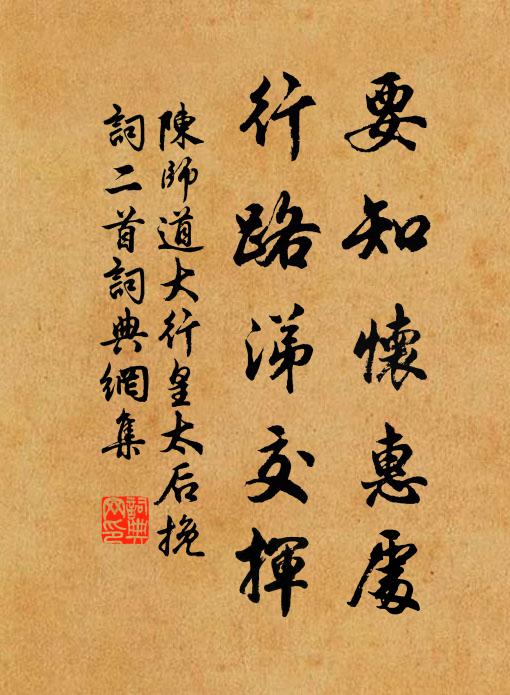 要知懷惠處
行路涕交揮
陳師道大行皇太后挽
詞二首詞典網集
詞典網印